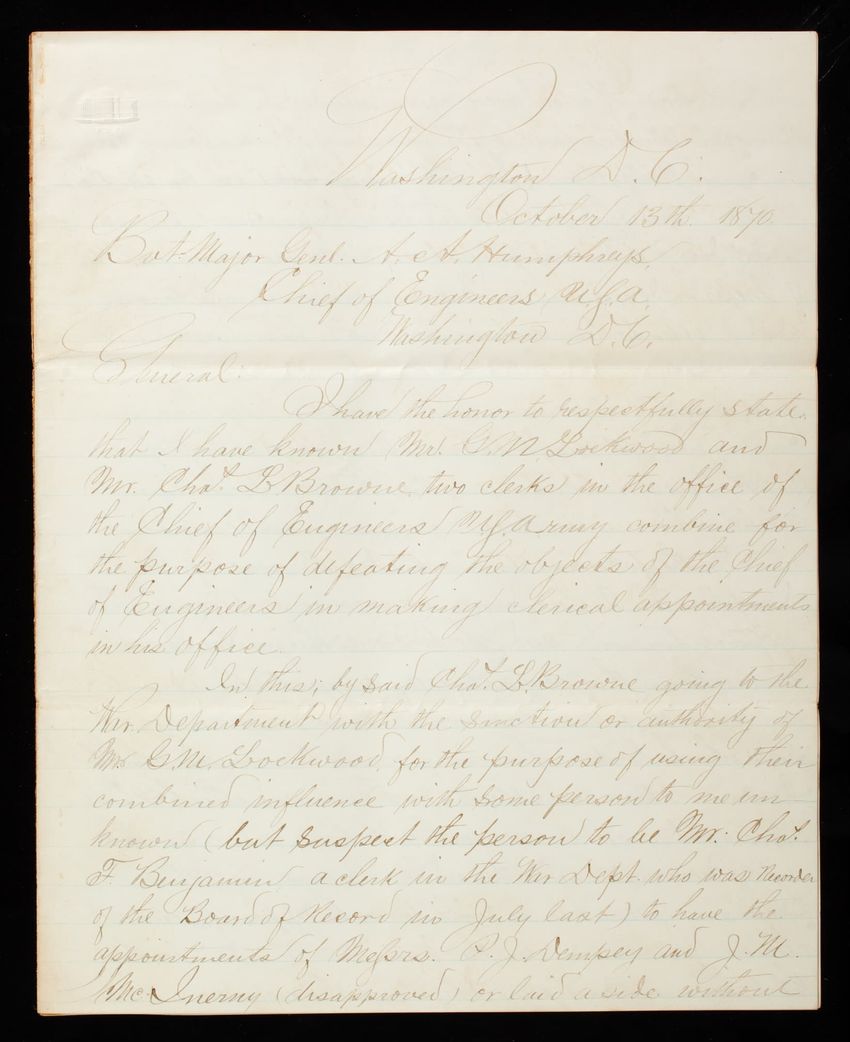 Washington D. C.
October 13th 1870.
Bvt. Major Genl. A. A. Humphreys,
Chief of Engineers U.S.A.
Washington D.C.
General:
I have the honor to respectfully state
that I have known Mr. G. M. Lockwood and
Mr. Chas. L. Browne two clerks in the office of
the Chief of Engineers U.S. Army combine for
the purpose of defeating the objects of the Chief
of Engineers in making clerical appointments
in his office.
In this; by said Chas. L. Browne going to the
War Department with the sanction or authority of
Mr. G. M. Lockwood, for the purpose of using their
combined influence with some person to me un
known (but suspect the person to be Mr. Chas.
F. Benjamin a clerk in the War Dept. who was Recorder
of the Board of Record in July last) to have the
appointments of Messrs. P. J. Dempsey and J. M.
McInerny (disapproved) or laid aside without